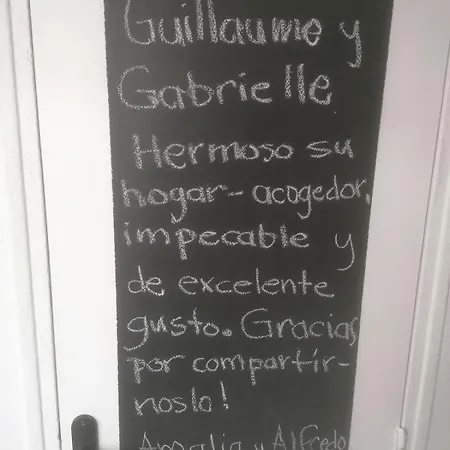 Guillaume y
Gabrielle
Hermoso su
hogar- acogedor,
impecable y
de excelente
gusto. Gracias
por compartír-
noslo!
Amalia y Alfredo